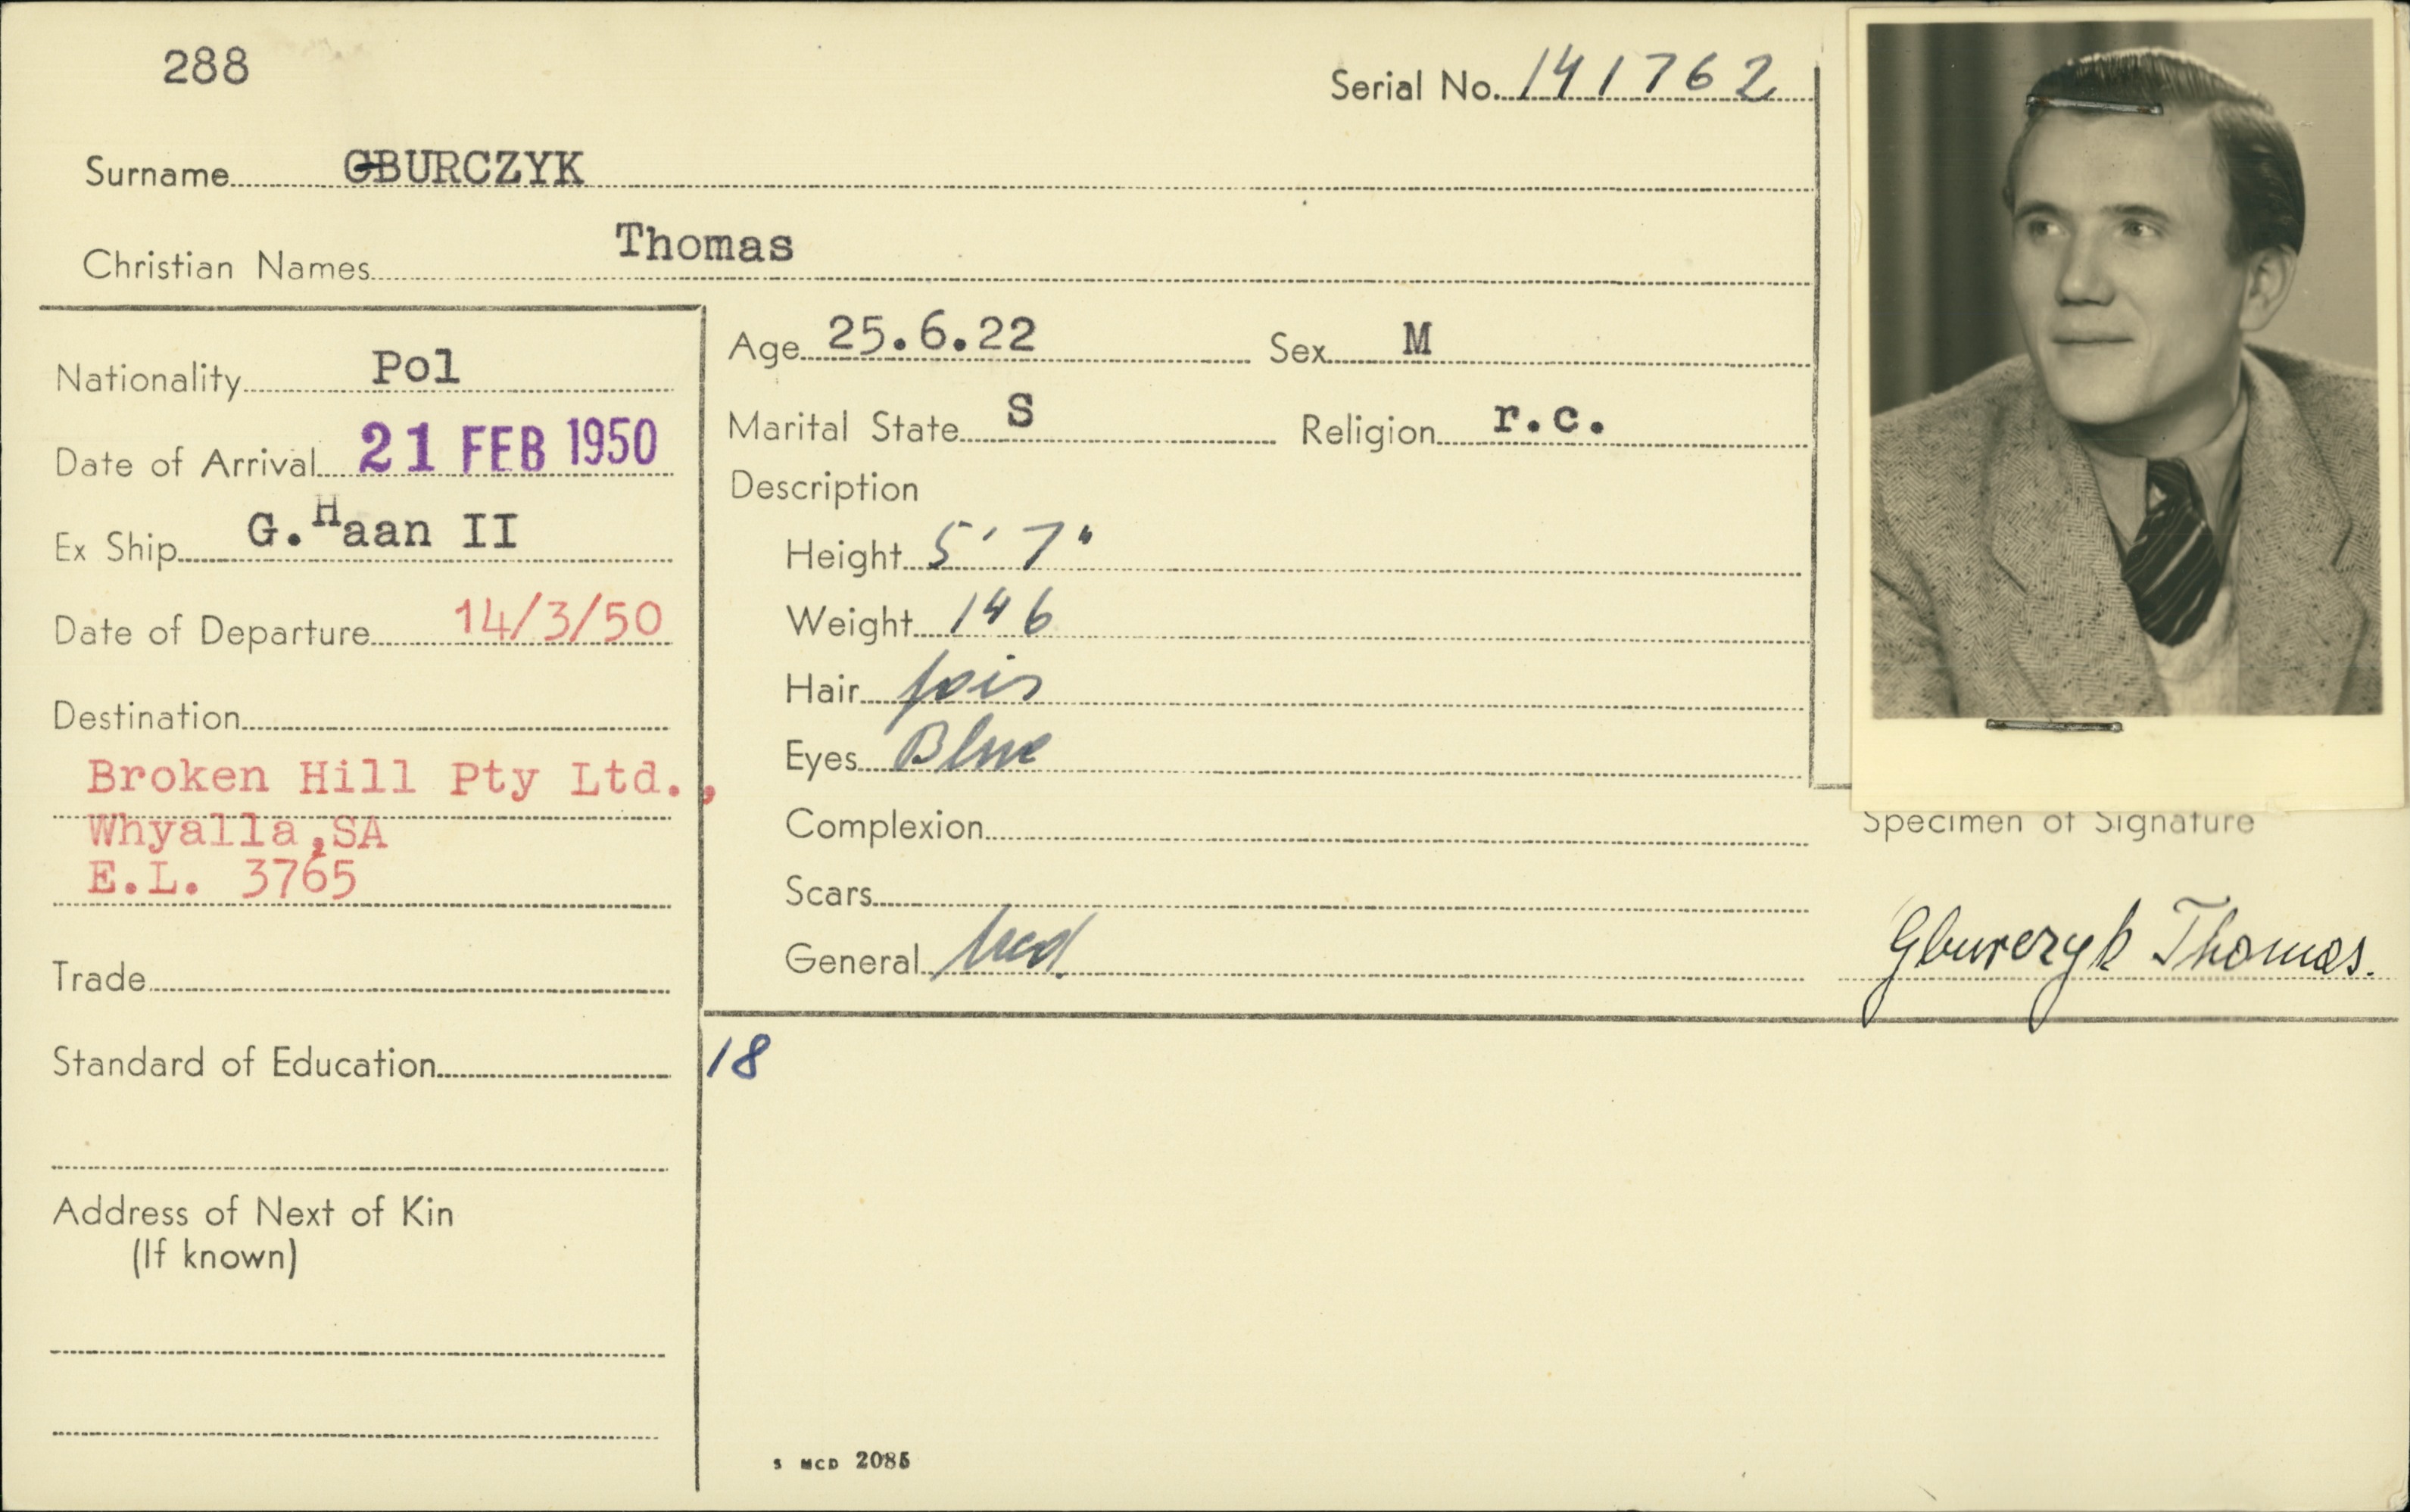 288
Serial No. 141762
Surname GBURCZYK
Christian Names Thomas
Nationality Pol
Date of Arrival 21 FEB 1950
Ex Ship G. Haan II
Date of Departure 14/3/50
Destination
Broken Hill Pty Ltd.,
Whyalla,SA
E.L. 3765
Trade
Standard of Education
Address of Next of Kin
(If known)
Age 25.6.22 Sex M
Marital State S Religion r.c.
Description
Height 5' 7"
Weight 146
Hair fair
Eyes Blue
Complexion
Scars
General Med
Specimen of Signature
Gburczyk Thomas.
18
S MCD 2085